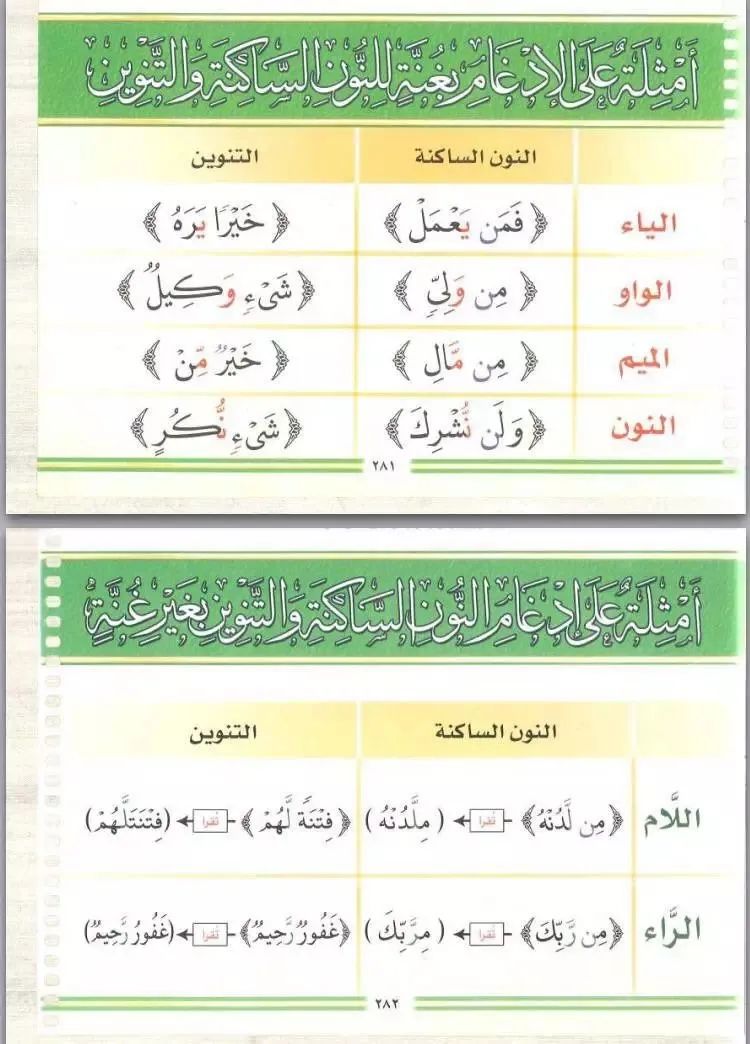 أَمْثِلَةٌ عَلَى الإِدْغَامِ بِغُنَّةٍ لِلنُّونِ السَّاكِنَةِ وَالتَّنْوِينِ
النون الساكنة التنوين
الياء ﴿ فَمَن يَعْمَلْ ﴾ ﴿ خَيْرًا يَرَهُ ﴾
الواو ﴿ مِن وَلِيٍّ ﴾ ﴿ شَىْءٍ وَكِيلٌ ﴾
الميم ﴿ مِن مَّالٍ ﴾ ﴿ خَيْرٌ مِّنْ ﴾
النون ﴿ وَلَن نُّشْرِكَ ﴾ ﴿ شَىْءٍ نُّكُرٍ ﴾
٢٨١
أَمْثِلَةٌ عَلَى إِدْغَامِ النُّونِ السَّاكِنَةِ وَالتَّنْوِينِ بِغَيْرِ غُنَّةٍ
النون الساكنة التنوين
اللَّام ﴿ مِن لَّدُنْهُ ﴾ تُقرأ ( مِلَّدُنْهُ ) ﴿ فِتْنَةً لَّهُمْ ﴾ تُقرأ (فِتْنَتَلَّهُمْ)
الرَّاء ﴿ مِن رَّبِّكَ ﴾ تُقرأ ( مِرَّبِّكَ ) ﴿غَفُورٌ رَّحِيمٌ﴾ تُقرأ (غَفُورُ رَّحِيمٌ)
٢٨٢